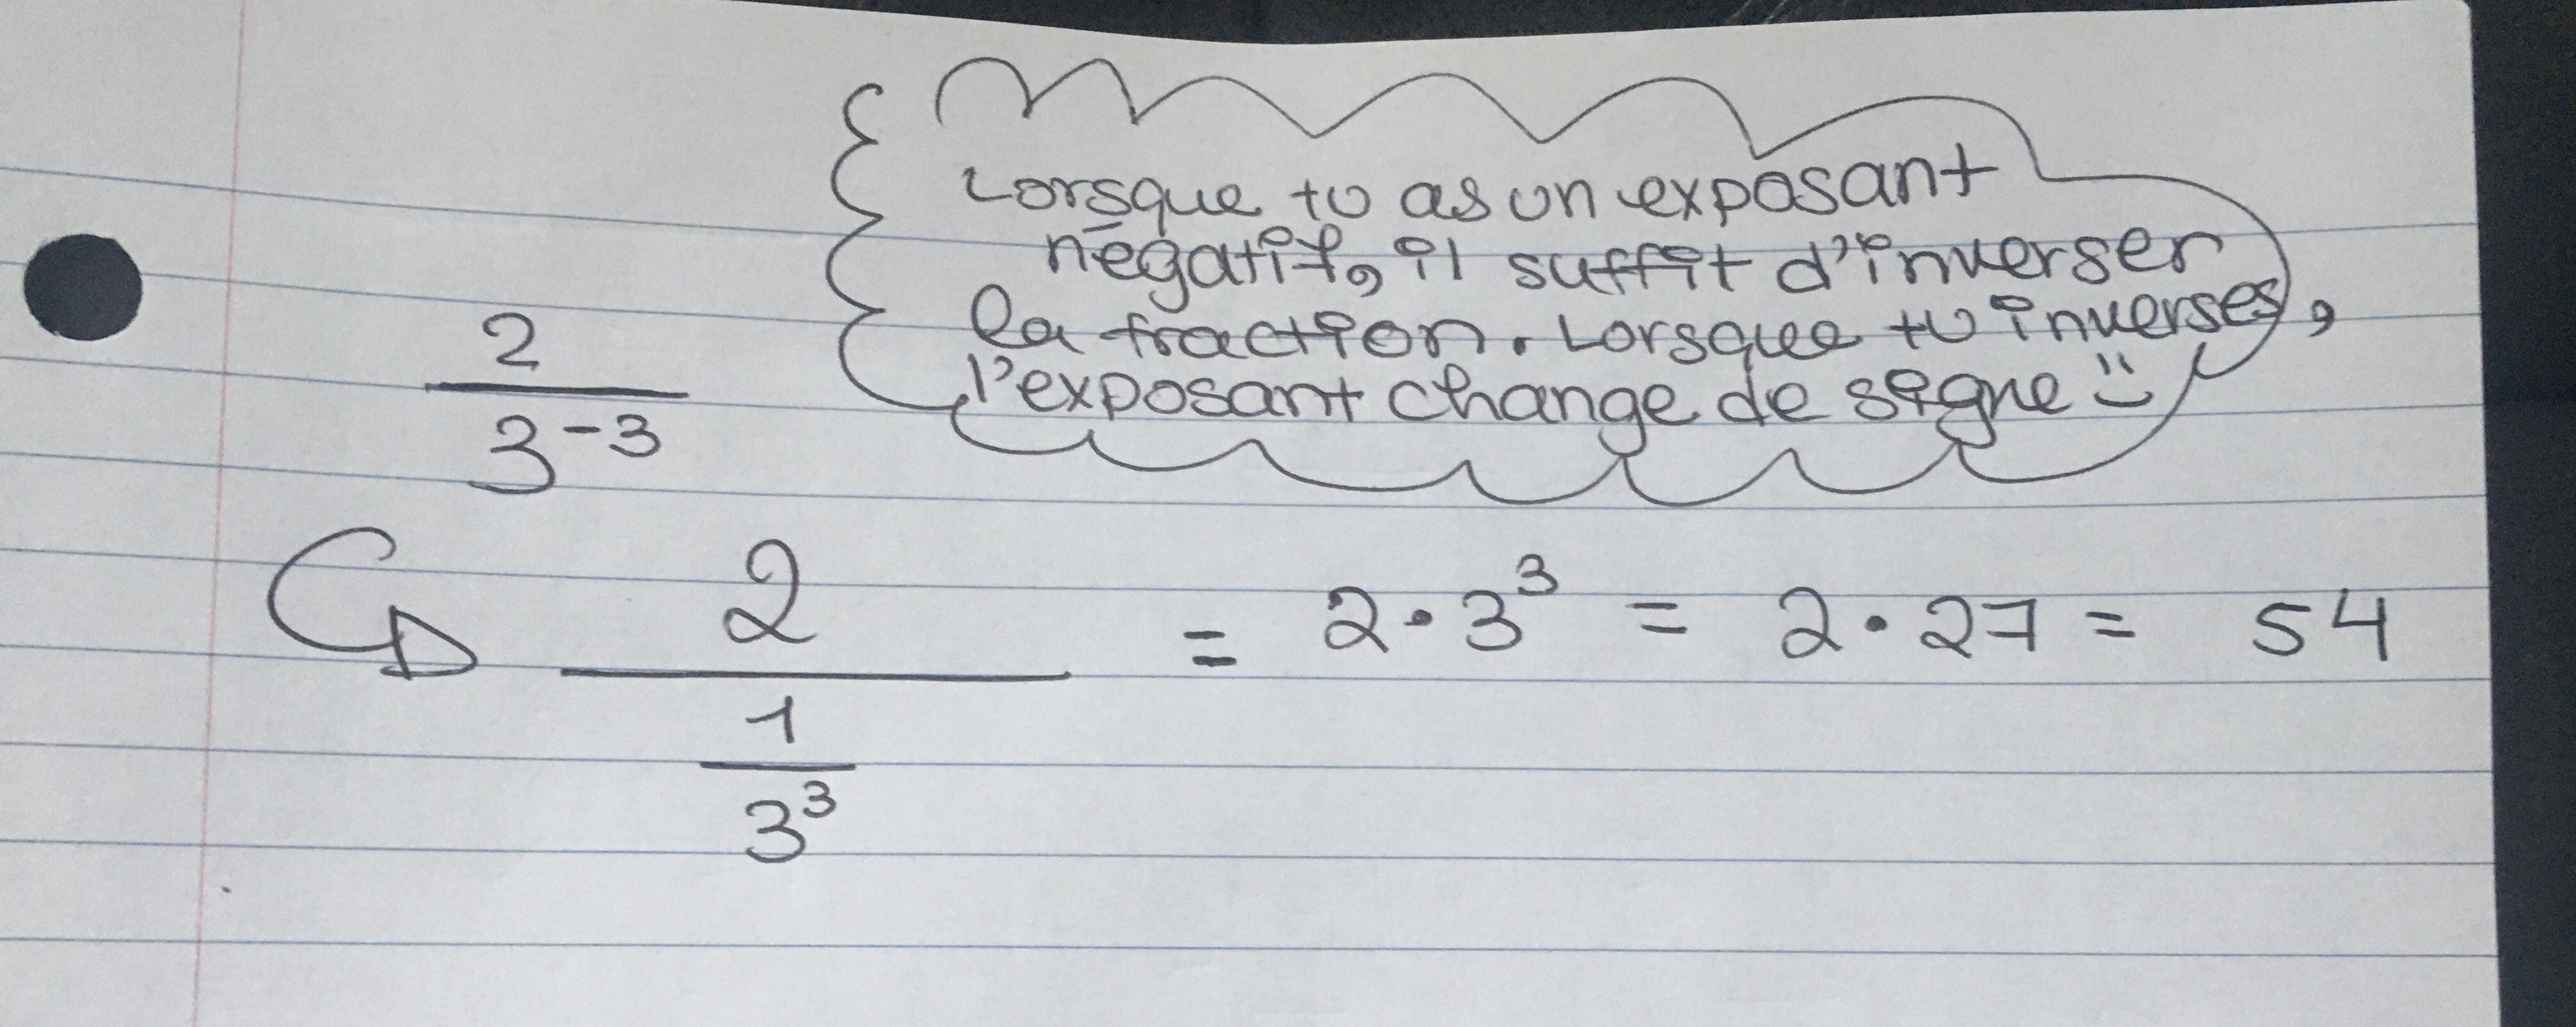 Lorsque tu as un exposant
négatif, il suffit d'inverser
la fraction. Lorsque tu inverses,
l'exposant change de signe :)
2
3^-3
2 = 2 • 3^3 = 2 • 27 = 54
1
3^3